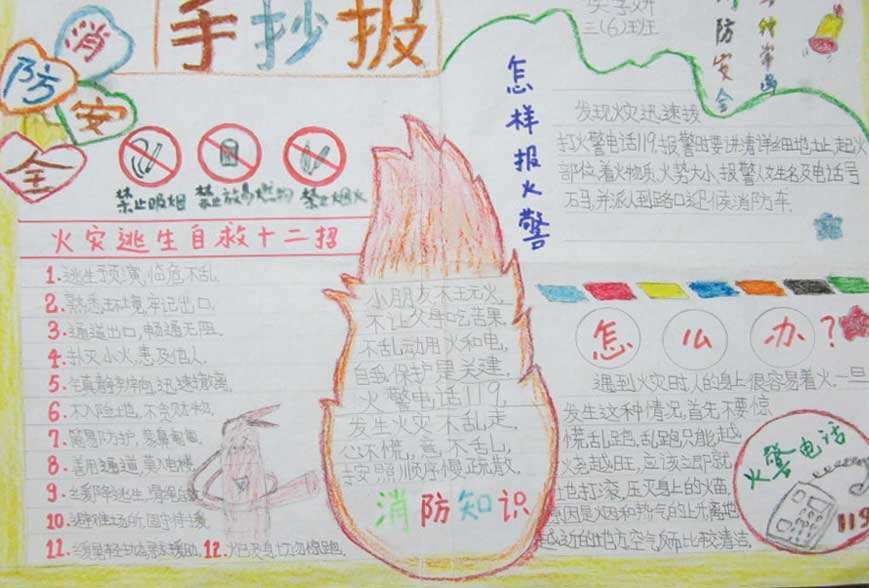 手抄报
消防安全
三(6)班
防安全
禁止吸烟
禁止放易燃物
禁止烟火
火灾逃生自救十二招
1.逃生预演,临危不乱.
2.熟悉环境,牢记出口.
3.通道出口,畅通无阻.
4.扑灭小火,惠及他人.
5.
6.不入险地,不贪财物.
7.简易防护,
8.善用通道,莫入电梯.
9.
10.避难场所,固守待援
11.
12.火已及身,切勿惊跑.
小朋友不玩火,
不让父母吃苦果
不乱动用火和电,
自我保护是关建,
火警电话119,
发生火灾不乱走.
心不慌,意不乱,
按照顺序慢疏散.
消防知识
怎样报火警
发现火灾迅速拨
打火警电话119.报警时要讲清详细地址,起火
部位,着火物质,火势大小,报警人姓名及电话号
码,并派人到路口迎候消防车.
怎么办?
遇到火灾时人的身上很容易着火.一旦
发生这种情况,首先不要惊
慌乱跑,乱跑只能越
火越旺,应该立即就
地打滚,压灭身上的火苗,
原因是火因和热气的上先离地
越近的地方,空气反而比较清洁.
火警电话
119